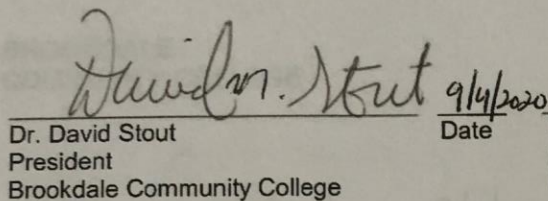 David M. Stout 9/4/2020
Dr. David Stout Date
President
Brookdale Community College